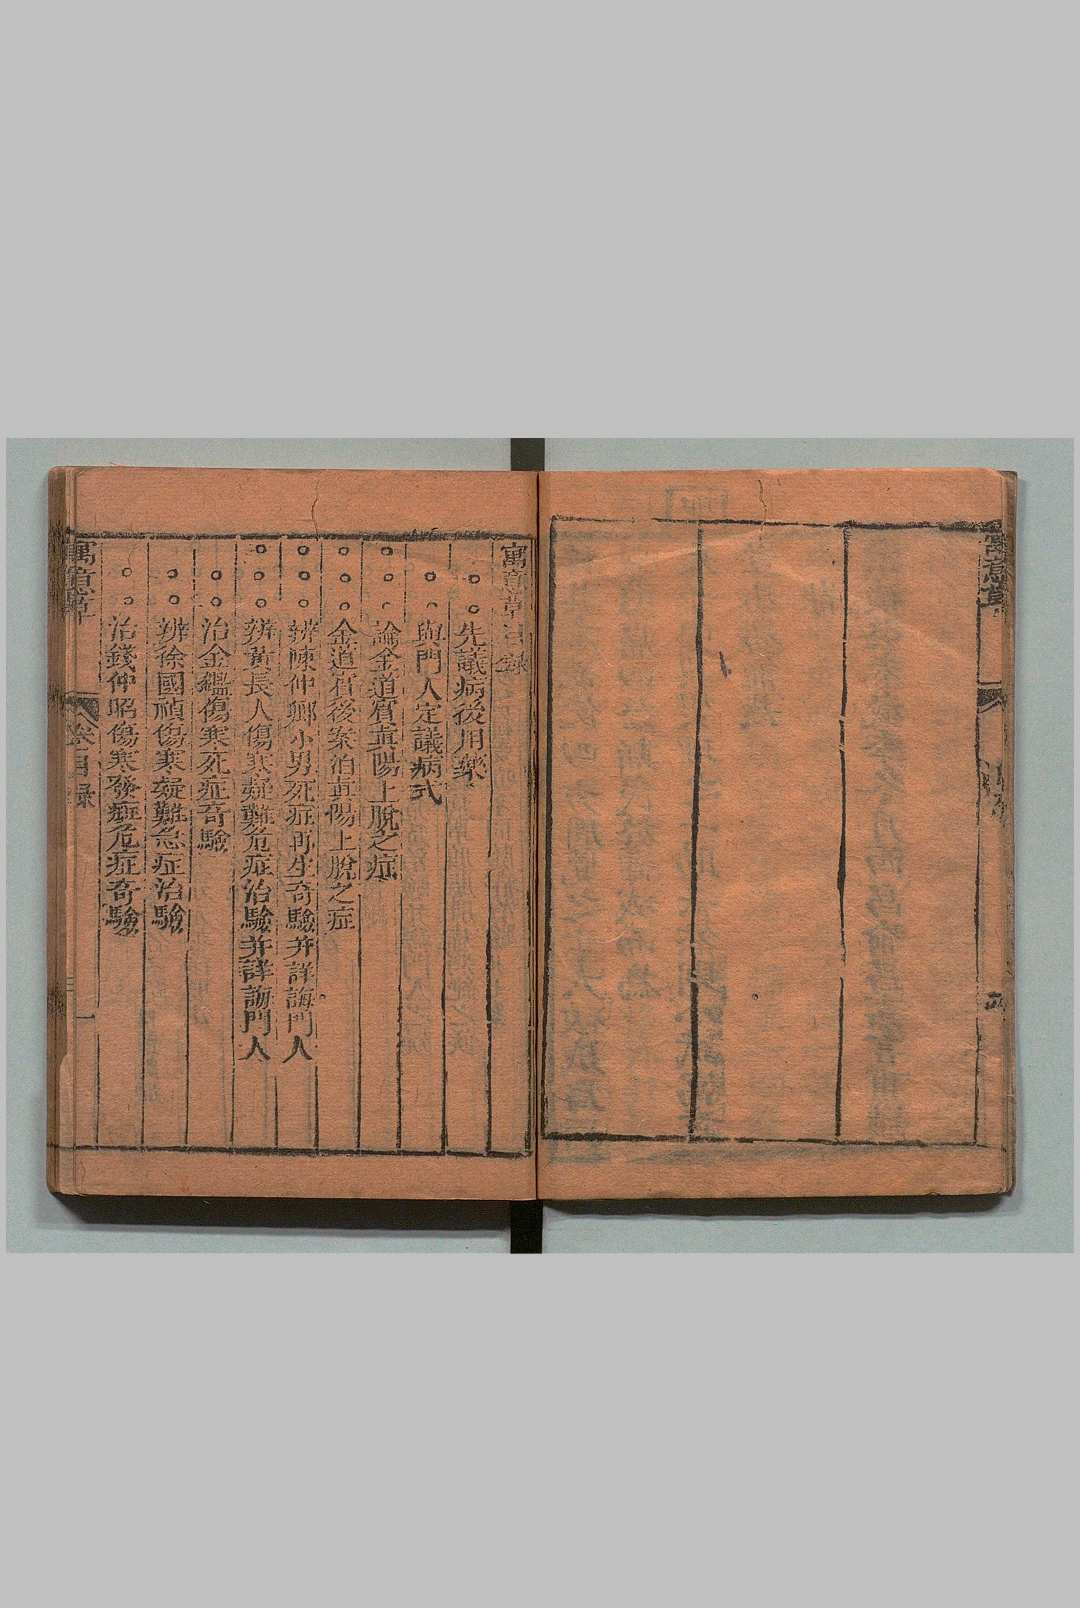 寓意草
寓意草目錄
先議病後用藥
與門人定議病式
論金道賓真陽上脫之症
金道賓後案治真陽上脫之症
辨陳仲鄉小男死症再生奇驗并詳誨門人
辨黃長人傷寒疑難危症治驗并詳誨門人
治金鑑傷寒死症奇驗
辨徐國禎傷寒疑難急症治驗
治錢仲昭傷寒發斑危症奇驗
寓意草 卷目錄 一